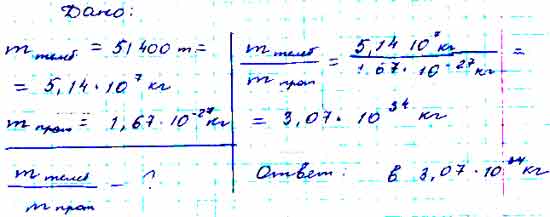 Дано:
m телеб = 51400 т =
= 5,14 · 10⁷ кг
m прот = 1,67 · 10⁻²⁷ кг
m телеб / m прот - ?
m телеб / m прот = 5,14 10⁷ кг / 1.67 · 10⁻²⁷ кг =
= 3,07 · 10³⁴
Ответ: в 3,07 · 10³⁴ кг